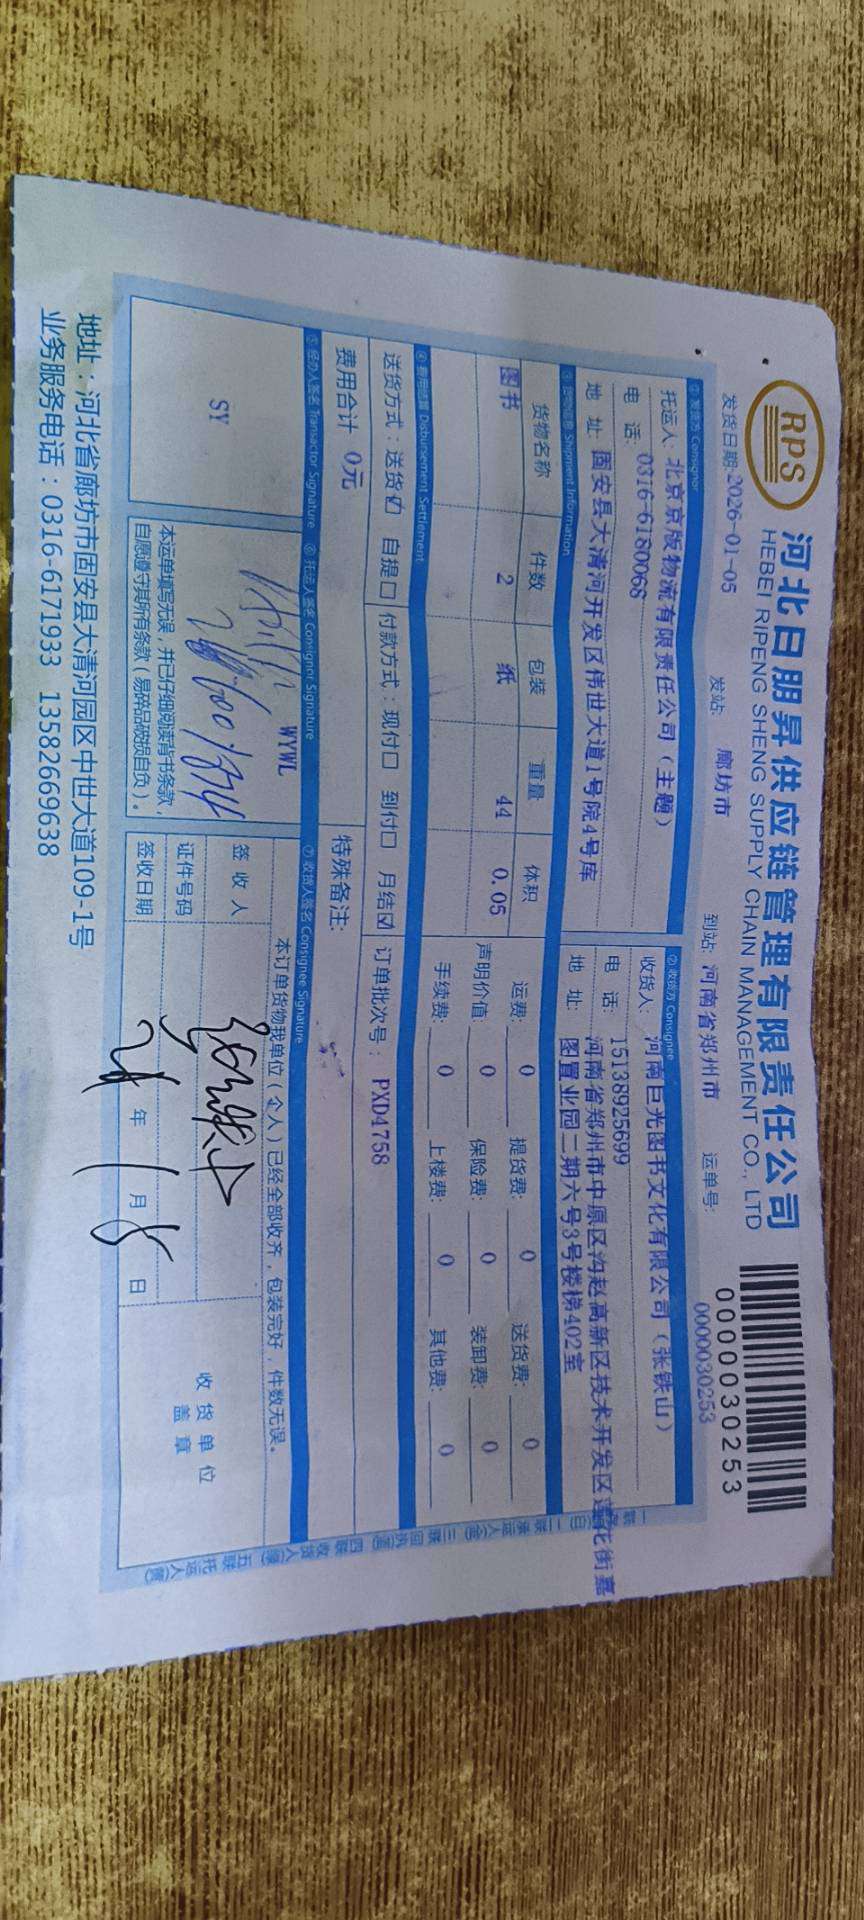 RPS
河北日朋昇供应链管理有限责任公司
HEBEI RIPENG SHENG SUPPLY CHAIN MANAGEMENT CO., LTD
0000030253
发货日期: 2026-01-05 发站: 廊坊市 到站: 河南省郑州市 运单号: 0000030253
① 发货方 Consignor
② 收货方 Consignee
托运人: 北京京版物流有限责任公司（主题）
收货人: 河南巨光图书文化有限公司（张铁山）
电 话: 0316-6180068
电 话: 15138925699
地 址: 固安县大清河开发区伟世大道1号院4号库
地 址: 河南省郑州市中原区沟赵高新区技术开发区莲花街嘉
图置业园二期六号3号楼梯402室
③ 货物信息 Shipment Information
货物名称 件数 包装 重量 体积
图书 2 纸 44 0.05
运费: 0 提货费: 0 送货费: 0
声明价值: 0 保险费: 0 装卸费: 0
手续费: 0 上楼费: 0 其他费: 0
④ 费用结算 Disbursement Settlement
送货方式：送货☑ 自提□ 付款方式：现付□ 到付□ 月结☑ 订单批次号： PXD4758
费用合计 0元
特殊备注:
⑤ 经办人签名 Transactor Signature
⑥ 托运人签名 Consignor Signature
⑦ 收货人签名 Consignee Signature
SY
WYWL
本运单填写无误，并已仔细阅读背书条款，
自愿遵守其所有条款（易碎品破损自负）。
本订单货物我单位（个人）已经全部收齐，包装完好，件数无误。
签 收 人
证件号码
签收日期 年 1 月 8 日
收 货 单 位
盖 章
地址：河北省廊坊市固安县大清河园区中世大道109-1号
业务服务电话：0316-6171933 13582669638